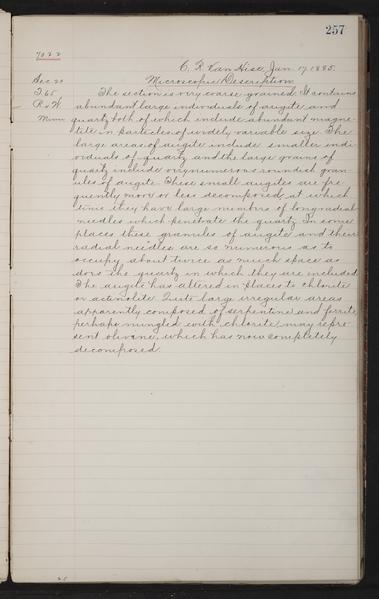 257
7022
C. R. Van Hise, Jan. 17, 1885.
Sec. 20
Microscopic Description.
T. 65
The section is very coarse grained. It contains
R. 2 W.
abundant large individuals of augite and
Minn
quartz both of which include abundant magne-
tite in particles of widely variable size. The
large areas of augite include smaller indi-
viduals of quartz and the large grains of
quartz include very numerous roundish gran-
ules of augite. These small augites are fre-
quently more or less decomposed at which
time they have large numbers of long radial
needles which penetrate the quartz. In some
places these granules of augite and their
radial needles are so numerous as to
occupy about twice as much space as
does the quartz in which they are included.
The augite has altered in places to chlorite
or actinolite. Quite large irregular areas
apparently composed of serpentine and ferrite,
perhaps mingled with chlorite, may repre
sent olivine, which has now completely
decomposed.